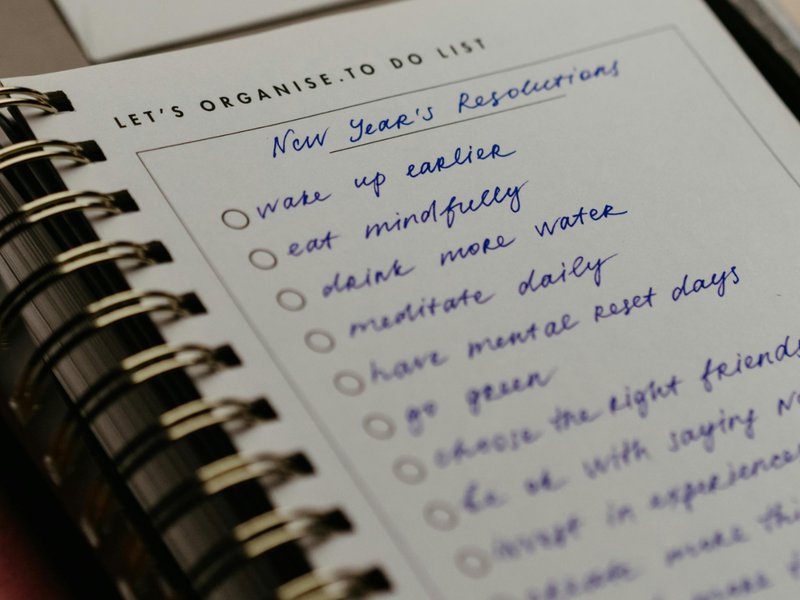 LET'S ORGANISE.TO DO LIST
New Year's Resolutions
wake up earlier
eat mindfully
drink more water
meditate daily
have mental reset days
go green
choose the right friends
be ok with saying No
invest in experiences
more
more